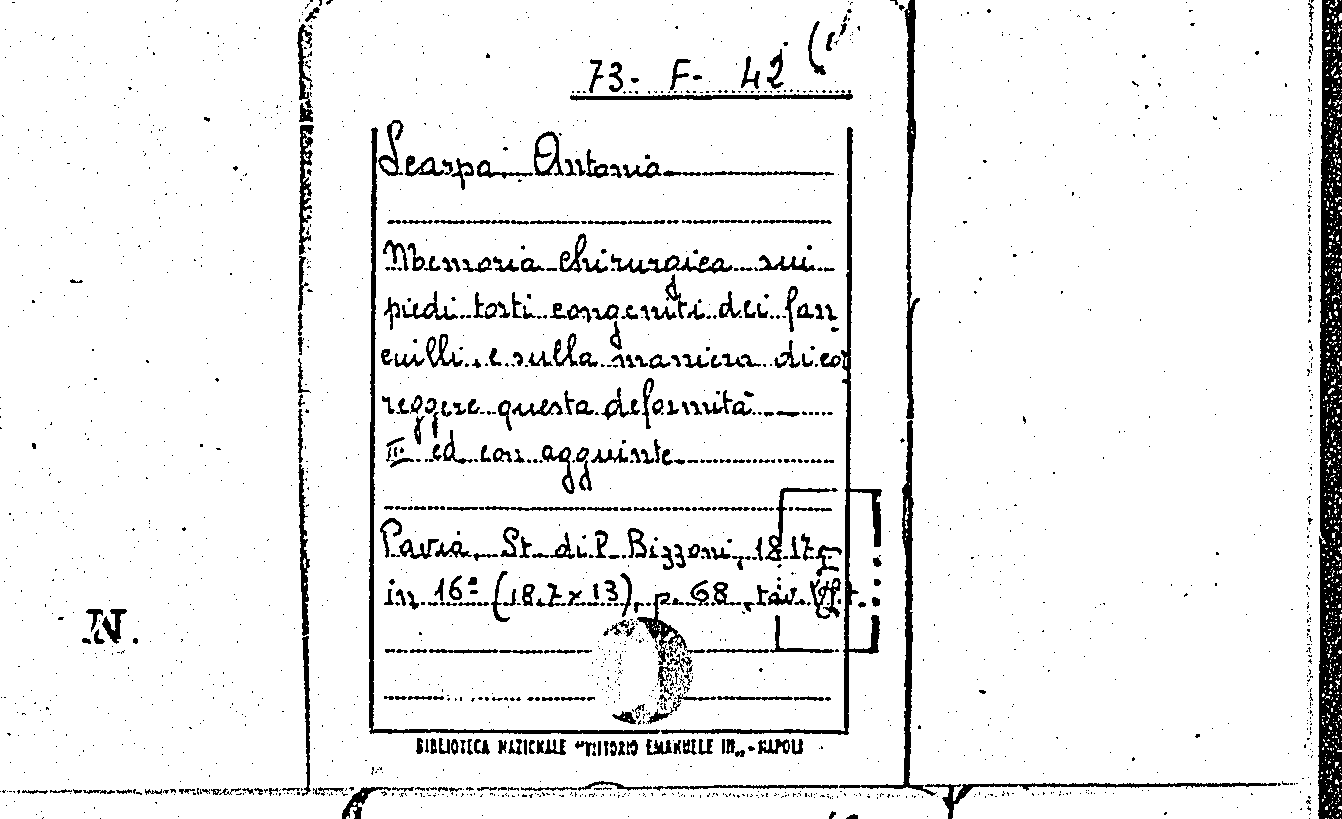 73- F- 42
Scarpa Antonio
Memoria chirurgica sui
piedi torti congeniti dei fan
ciulli, e sulla maniera di cor
reggere questa deformità
III ed con aggiunte
Pavia, St. di P. Bizzoni, 1817
in 16° (18.7 x 13), p. 68, tav. f.t.
N.
BIBLIOTECA NAZIONALE "VITTORIO EMANUELE III„ - NAPOLI